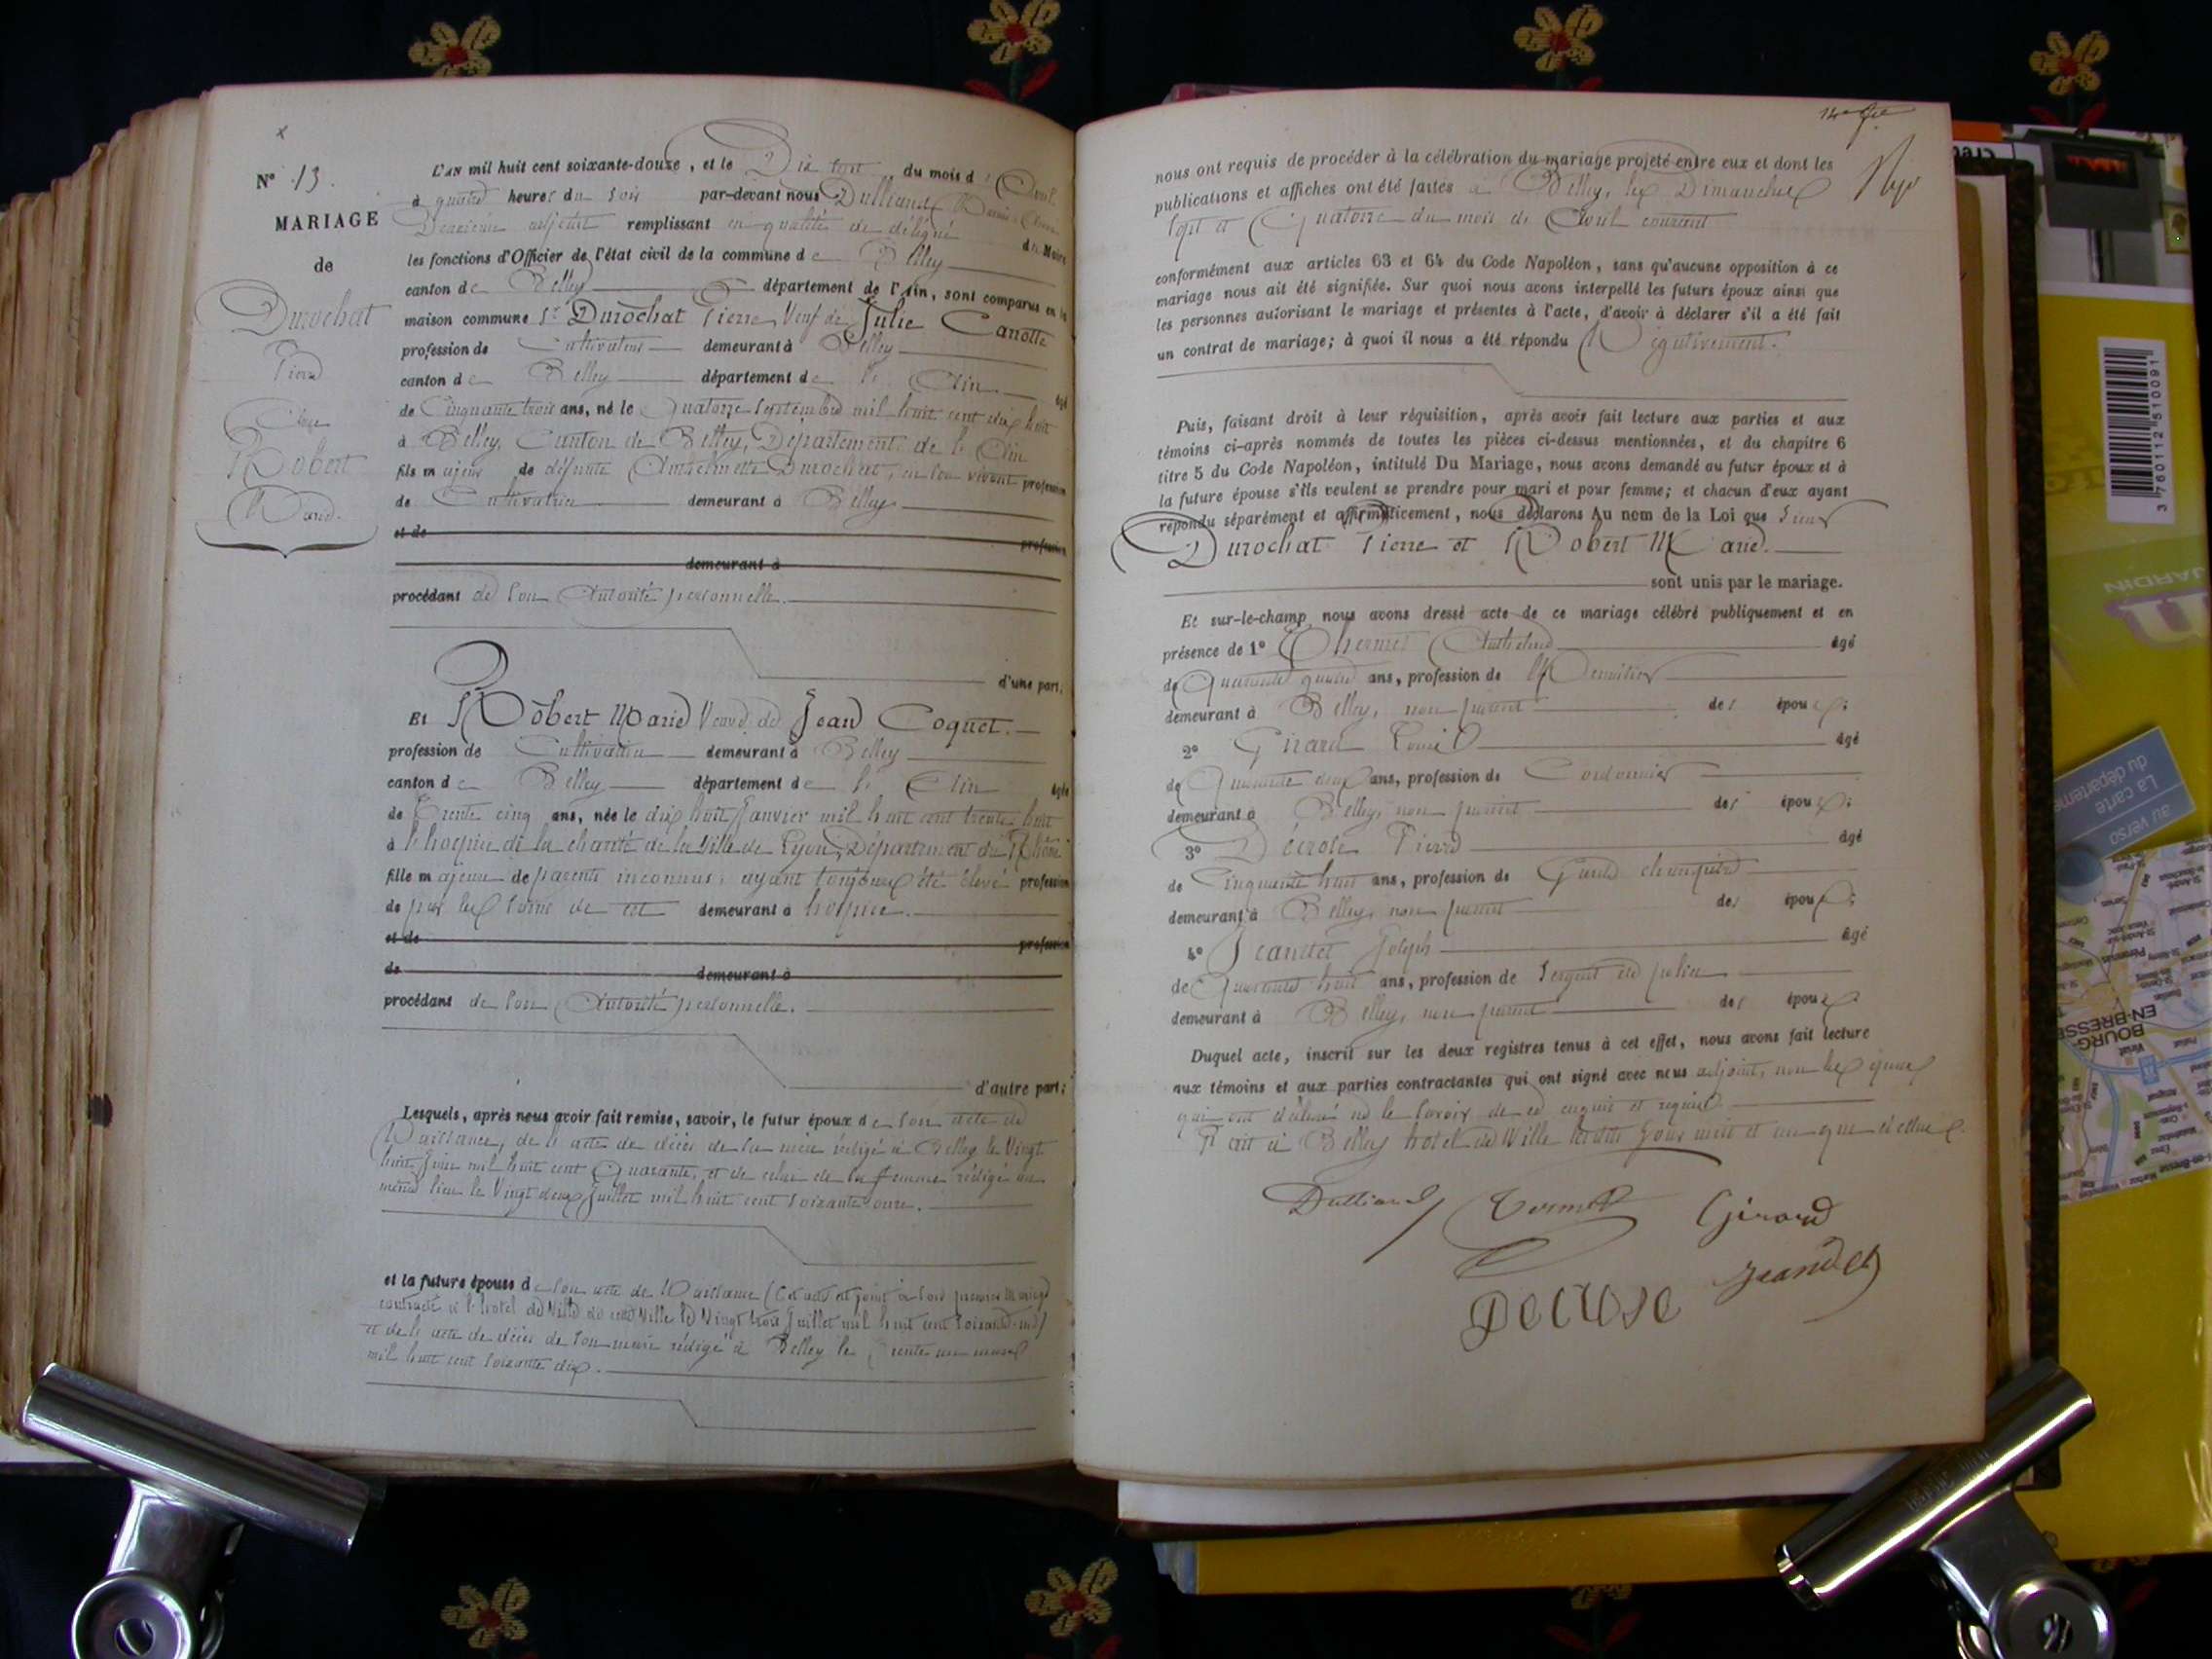 N° 13.
MARIAGE
de
Durochat
Pierre
Et
Robert
Marie.
L'AN mil huit cent soixante-douze, et le Dix sept du mois d'Avril
à quatre heures du soir par-devant nous Dulliand
Deuxième adjoint remplissant en qualité de délégué du Maire
les fonctions d'Officier de l'état civil de la commune de Belley
canton de Belley département de l'Ain, sont comparus en la
maison commune Sr Durochat Pierre, Veuf de Julie Carrotte
profession de Cultivateur demeurant à Belley
canton de Belley département de l'Ain âgé
de Cinquante trois ans, né le Quatorze Septembre mil huit cent dix huit
à Belley, Canton de Belley, Département de l'Ain
fils majeur de défunte Anthelmette Durochat, en son vivant profession
de Cultivatrice demeurant à Belley
et de profession
demeurant à
procédant de son Autorité personnelle.
d'une part;
Et Robert Marie Veuve de Jean Coquet.
profession de Cultivatrice demeurant à Belley
canton de Belley département de l'Ain âgée
de Trente cinq ans, née le dix huit Janvier mil huit cent trente huit
à l'hospice de la charité de la Ville de Lyon, Département du Rhône
fille majeure de parents inconnus, ayant toujours été élevé profession
de par les soins de cet demeurant à hospice.
et de profession
de demeurant à
procédant de son Autorité personnelle.
d'autre part;
Lesquels, après nous avoir fait remise, savoir, le futur époux de son acte de
Naissance, de l'acte de décès de sa mère rédigé à Belley le Vingt
huit Juin mil huit cent Quarante, et de celui de sa femme rédigé au
même lieu le Vingt deux Juillet mil huit cent soixante onze.
et la future épouse de son acte de Naissance (Cet acte est joint à son premier Mariage
contracté à l'hotel de Ville de cette Ville le Vingt trois Juillet mil huit cent
et de l'acte de décès de son mari rédigé à Belley le Trente un mars
mil huit cent soixante dix.
nous ont requis de procéder à la célébration du mariage projeté entre eux et dont les
publications et affiches ont été faites à Belley, les Dimanches
sept et Quatorze du mois de Avril courant
conformément aux articles 63 et 64 du Code Napoléon, sans qu'aucune opposition à ce
mariage nous ait été signifiée. Sur quoi nous avons interpellé les futurs époux ainsi que
les personnes autorisant le mariage et présentes à l'acte, d'avoir à déclarer s'il a été fait
un contrat de mariage; à quoi il nous a été répondu Négativement.
Puis, faisant droit à leur réquisition, après avoir fait lecture aux parties et aux
témoins ci-après nommés de toutes les pièces ci-dessus mentionnées, et du chapitre 6
titre 5 du Code Napoléon, intitulé Du Mariage, nous avons demandé au futur époux et à
la future épouse s'ils veulent se prendre pour mari et pour femme; et chacun d'eux ayant
répondu séparément et affirmativement, nous déclarons Au nom de la Loi que Sieur
Durochat Pierre et Robert Marie.
sont unis par le mariage.
Et sur-le-champ nous avons dressé acte de ce mariage célébré publiquement et en
présence de 1° Thermet Anthelme âgé
de Quarante quatre ans, profession de Menuisier
demeurant à Belley, non parent des époux;
2° Girard Louis âgé
de Quarante deux ans, profession de Cordonnier
demeurant à Belley, non parent des époux;
3° Pierre âgé
de Cinquante huit ans, profession de Garde champêtre
demeurant à Belley, non parent des époux;
4° Jeandet Joseph âgé
de Quarante huit ans, profession de Sergent de police
demeurant à Belley, non parent des époux
Duquel acte, inscrit sur les deux registres tenus à cet effet, nous avons fait lecture
aux témoins et aux parties contractantes qui ont signé avec nous adjoint, non les époux
qui ont déclaré ne le savoir de ce enquis et requis
Fait à Belley hotel de Ville lesdits jour mois et an que dessus
Dulliand
Girard
Jeandet
La carte
du département
au verso
JARDIN
3 760112 510091
BOURG-
EN-BRESSE